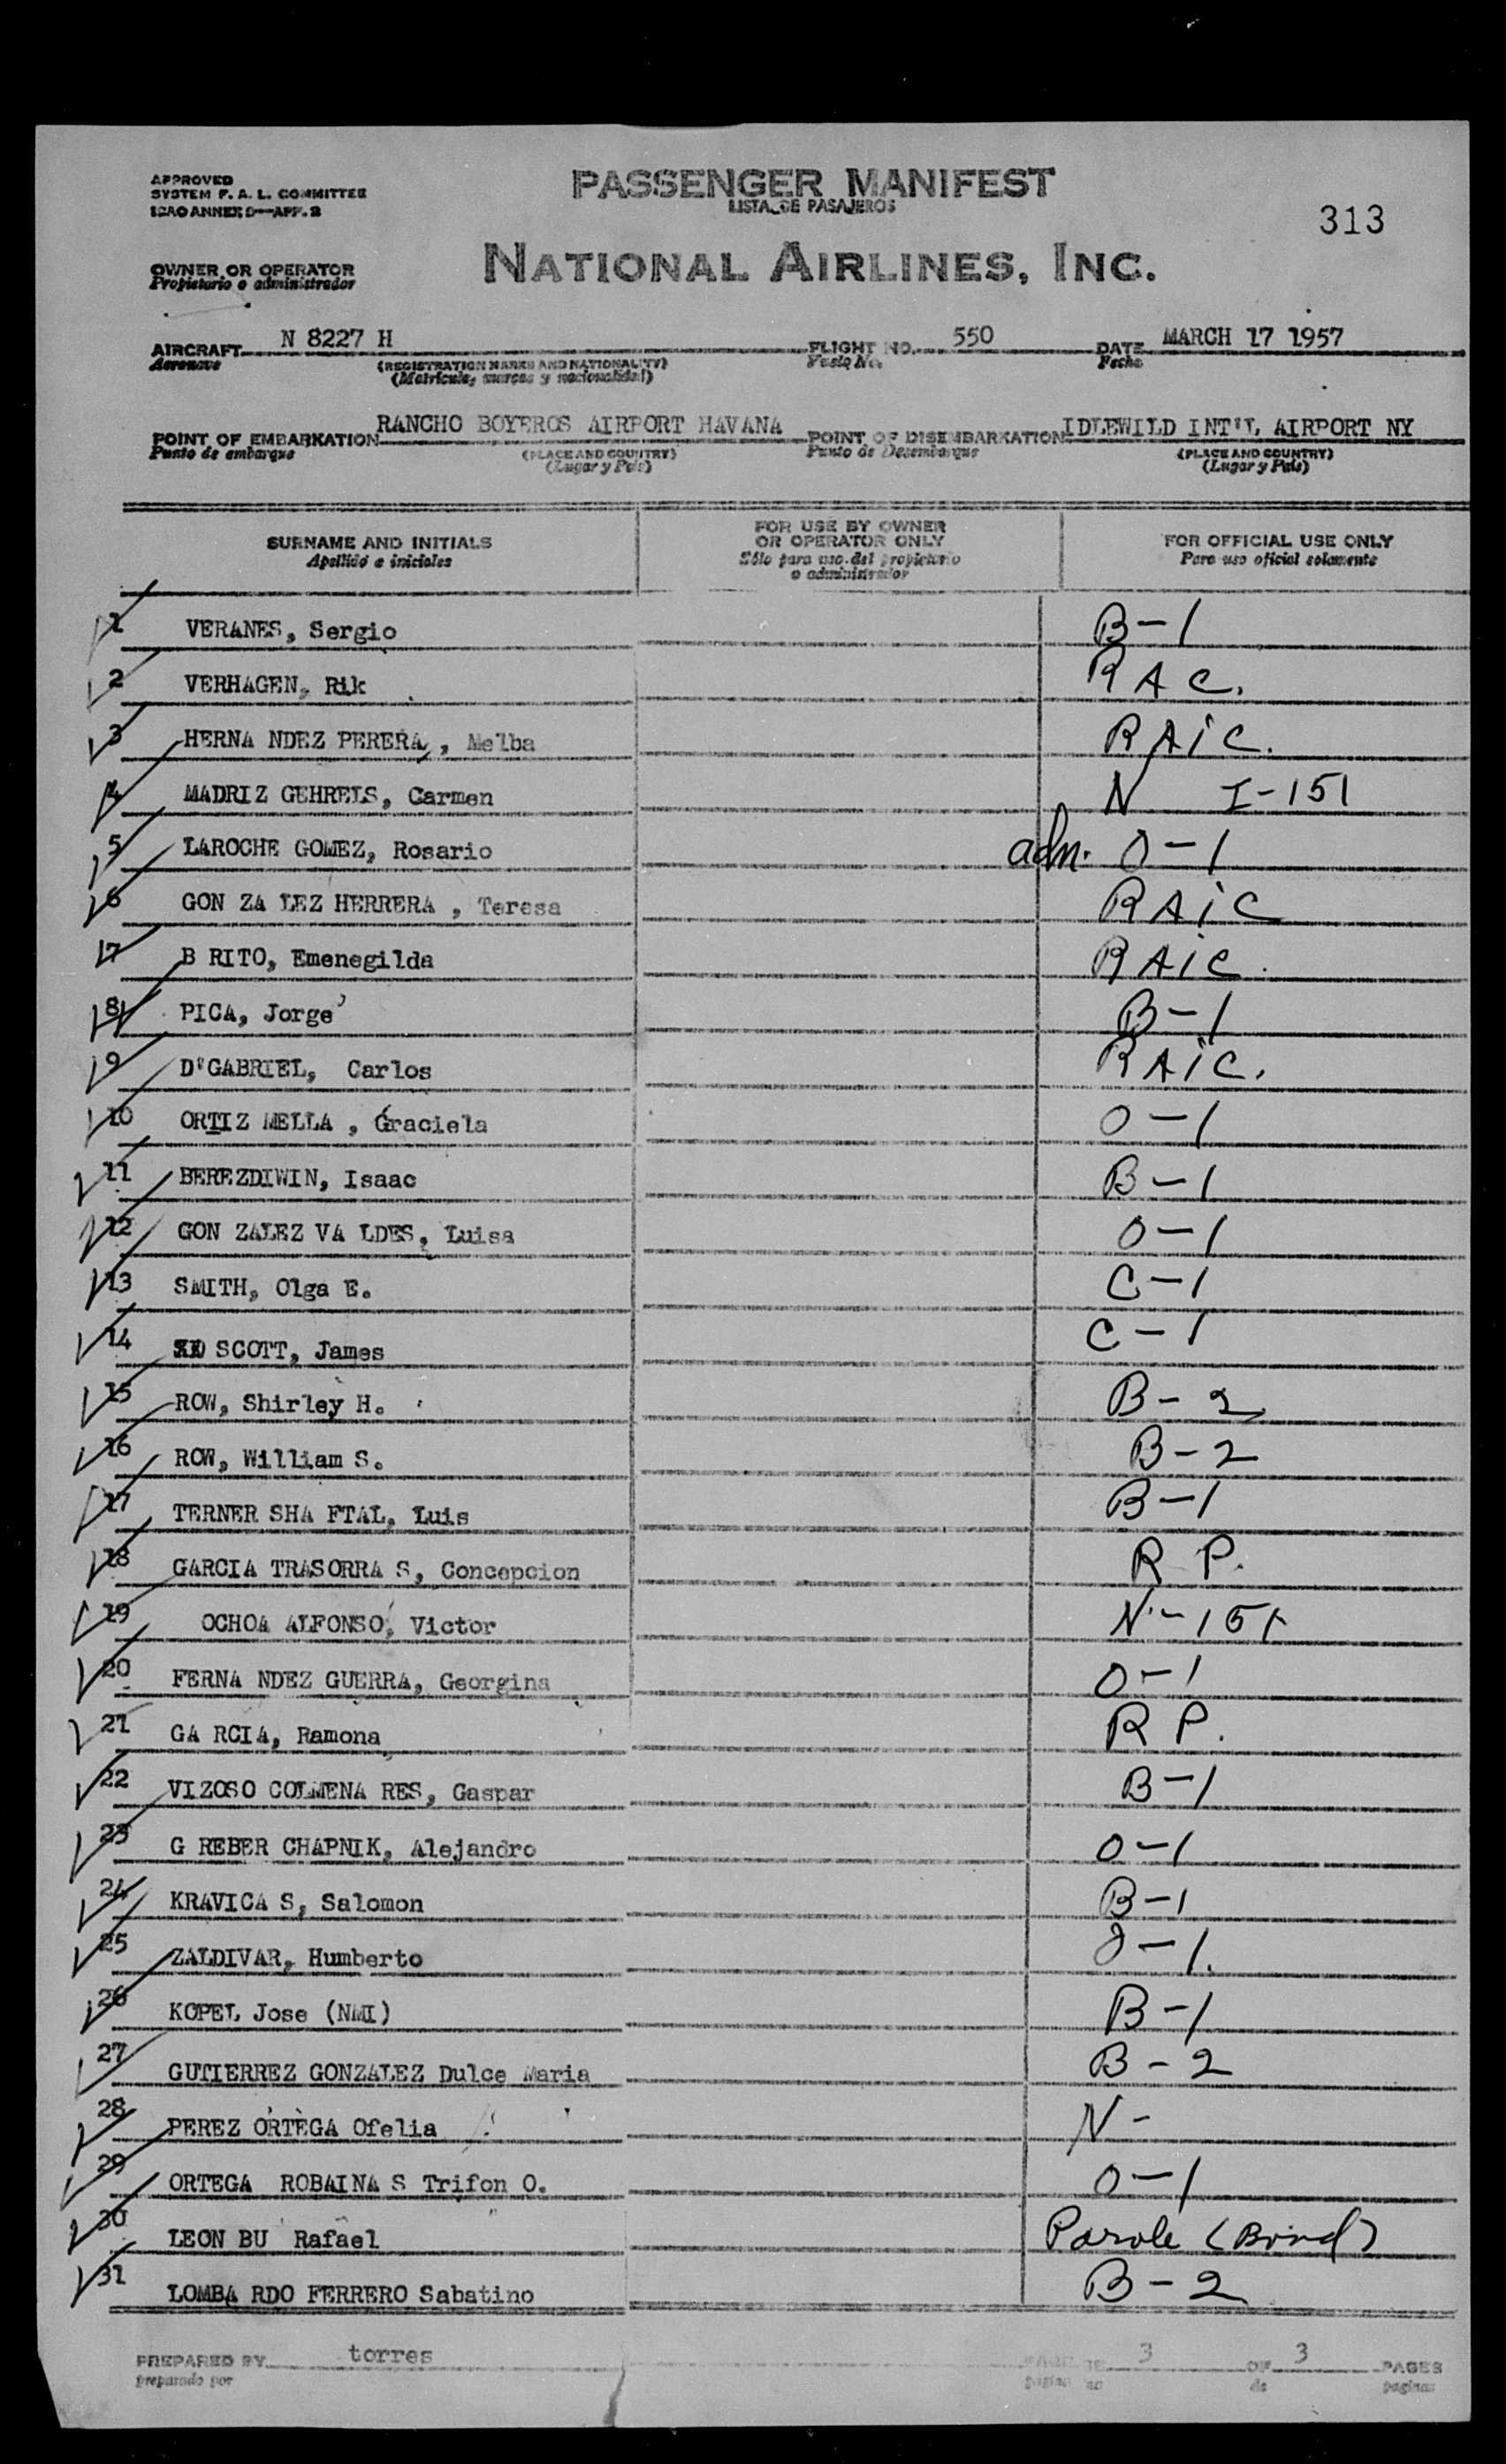 APPROVED
SYSTEM F. A. L. COMMITTEE
ICAO ANNEX 9—APP. 2
PASSENGER MANIFEST
LISTA DE PASAJEROS
313
NATIONAL AIRLINES, INC.
OWNER OR OPERATOR
Propietario o administrador
AIRCRAFT N 8227 H FLIGHT NO. 550 DATE MARCH 17 1957
Aeronave (REGISTRATION MARKS AND NATIONALITY) Vuelo No. Fecha
(Matricula, marcas y nacionalidad)
POINT OF EMBARKATION RANCHO BOYEROS AIRPORT HAVANA POINT OF DISEMBARKATION IDLEWILD INT'L AIRPORT NY
Punto de embarque (PLACE AND COUNTRY) Punto de Desembarque (PLACE AND COUNTRY)
(Lugar y País) (Lugar y País)
SURNAME AND INITIALS
Apellido e iniciales
FOR USE BY OWNER
OR OPERATOR ONLY
Sólo para uso del propietario
o administrador
FOR OFFICIAL USE ONLY
Para uso oficial solamente
1 VERANES, Sergio B-1
2 VERHAGEN, Rik RAC.
3 HERNA NDEZ PERERA, Melba RAIC.
4 MADRIZ GEHRELS, Carmen N I-151
5 LAROCHE GOMEZ, Rosario adm. O-1
6 GON ZA LEZ HERRERA , Teresa RAIC
17 B RITO, Emenegilda RAIC.
8 PICA, Jorge B-1
9 D'GABRIEL, Carlos RAIC.
10 ORTIZ MELLA , Graciela O-1
11 BEREZDIWIN, Isaac B-1
12 GON ZALEZ VA LDES, Luisa O-1
13 SMITH, Olga E. C-1
14 SCOTT, James C-1
15 ROW, Shirley H. B-2
16 ROW, William S. B-2
17 TERNER SHA FTAL, Luis B-1
18 GARCIA TRASORRA S, Concepcion R P.
19 OCHOA ALFONSO, Victor N-151
20 FERNA NDEZ GUERRA, Georgina O-1
21 GA RCIA, Ramona R P.
22 VIZOSO COLMENA RES, Gaspar B-1
23 G REBER CHAPNIK, Alejandro O-1
24 KRAVICA S, Salomon B-1
25 ZALDIVAR, Humberto O-1.
26 KOPEL Jose (NMI) B-1
27 GUTIERREZ GONZALEZ Dulce Maria B-2
28 PEREZ ORTEGA Ofelia N-
29 ORTEGA ROBAINA S Trifon O. O-1
30 LEON BU Rafael Parole (Bond)
31 LOMBA RDO FERRERO Sabatino B-2
PREPARED BY torres 3 OF 3 PAGES
preparado por de paginas